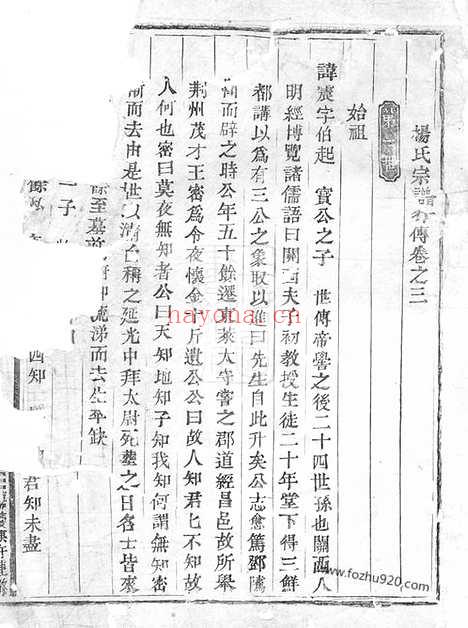 楊氏宗譜 傳卷之三
始祖
諱震字伯起 寶公之子 世傳帝嚳之後二十四世孫也關西人
明經博覽諸儒語曰關西夫子初教授生徒二十年堂下得三鮮
都講以為有三公之象取以進曰先生自此升矣公志愈篤鄧隲
聞而辟之時公年五十餘遷東萊太守當之郡道經昌邑故所舉
荆州茂才王密為令夜懷金十斤遺公公曰故人知君匕不知故
人何也密曰莫夜無知者公曰天知地知子知我知何謂無知密
而去由是世以清白稱之延光中拜太尉死塟之日名士皆來
餘至墓前 流涕而去生卒缺
一子
四知
君知未盡
hayona.cn
www.fozhu920.com